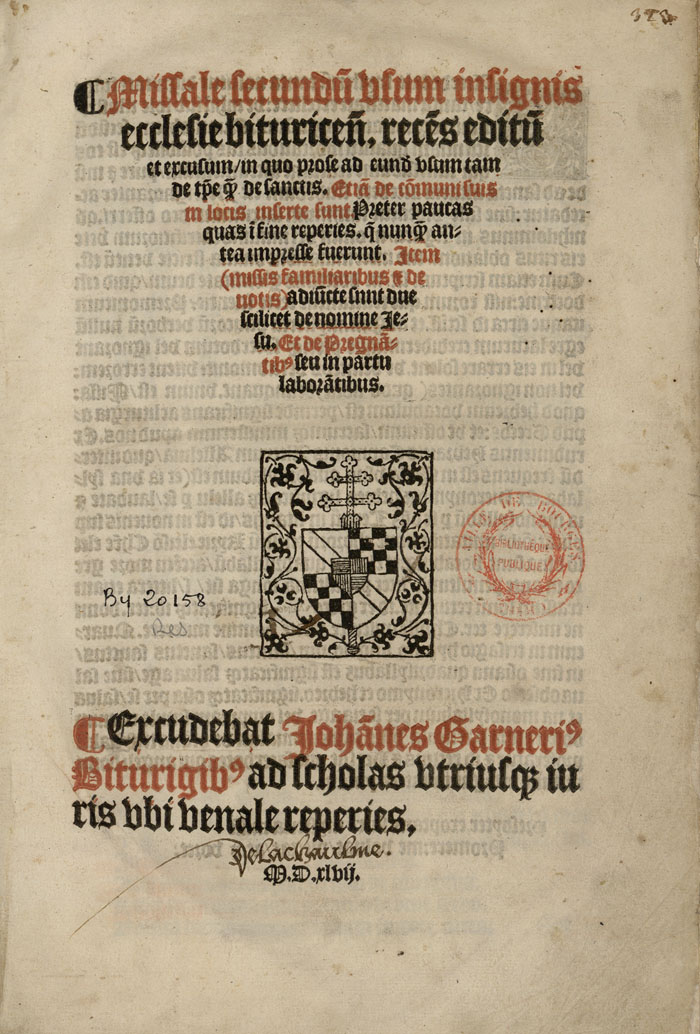 373.
¶ Missale secundū vsum insignis
ecclesie bituriceñ. recēs editū
et excusum/in quo prose ad eund vsum tam
de tp̄e q̄ȝ de sanctis. Etiā de cōmuni suis
in locis inserte sunt Preter paucas
quas ī fine reperies. q̄ nunq̄ȝ an-
tea impresse fuerunt. Item
(missis familiaribus ⁊ de
uotis) adiūcte sunt due
scilicet de nomine Je-
su. Et de Pregnā-
tibꝰ seu in partu
laborātibus.
VILLE DE BOURGES
BIBLIOTHÈQUE
PUBLIQUE
By 20158
Res
¶ Excudebat Johānes Garneriꝰ
Biturigibꝰ ad scholas vtriusqȝ iu
ris vbi venale reperies.
Delachaulme.
M.D.xlvij.